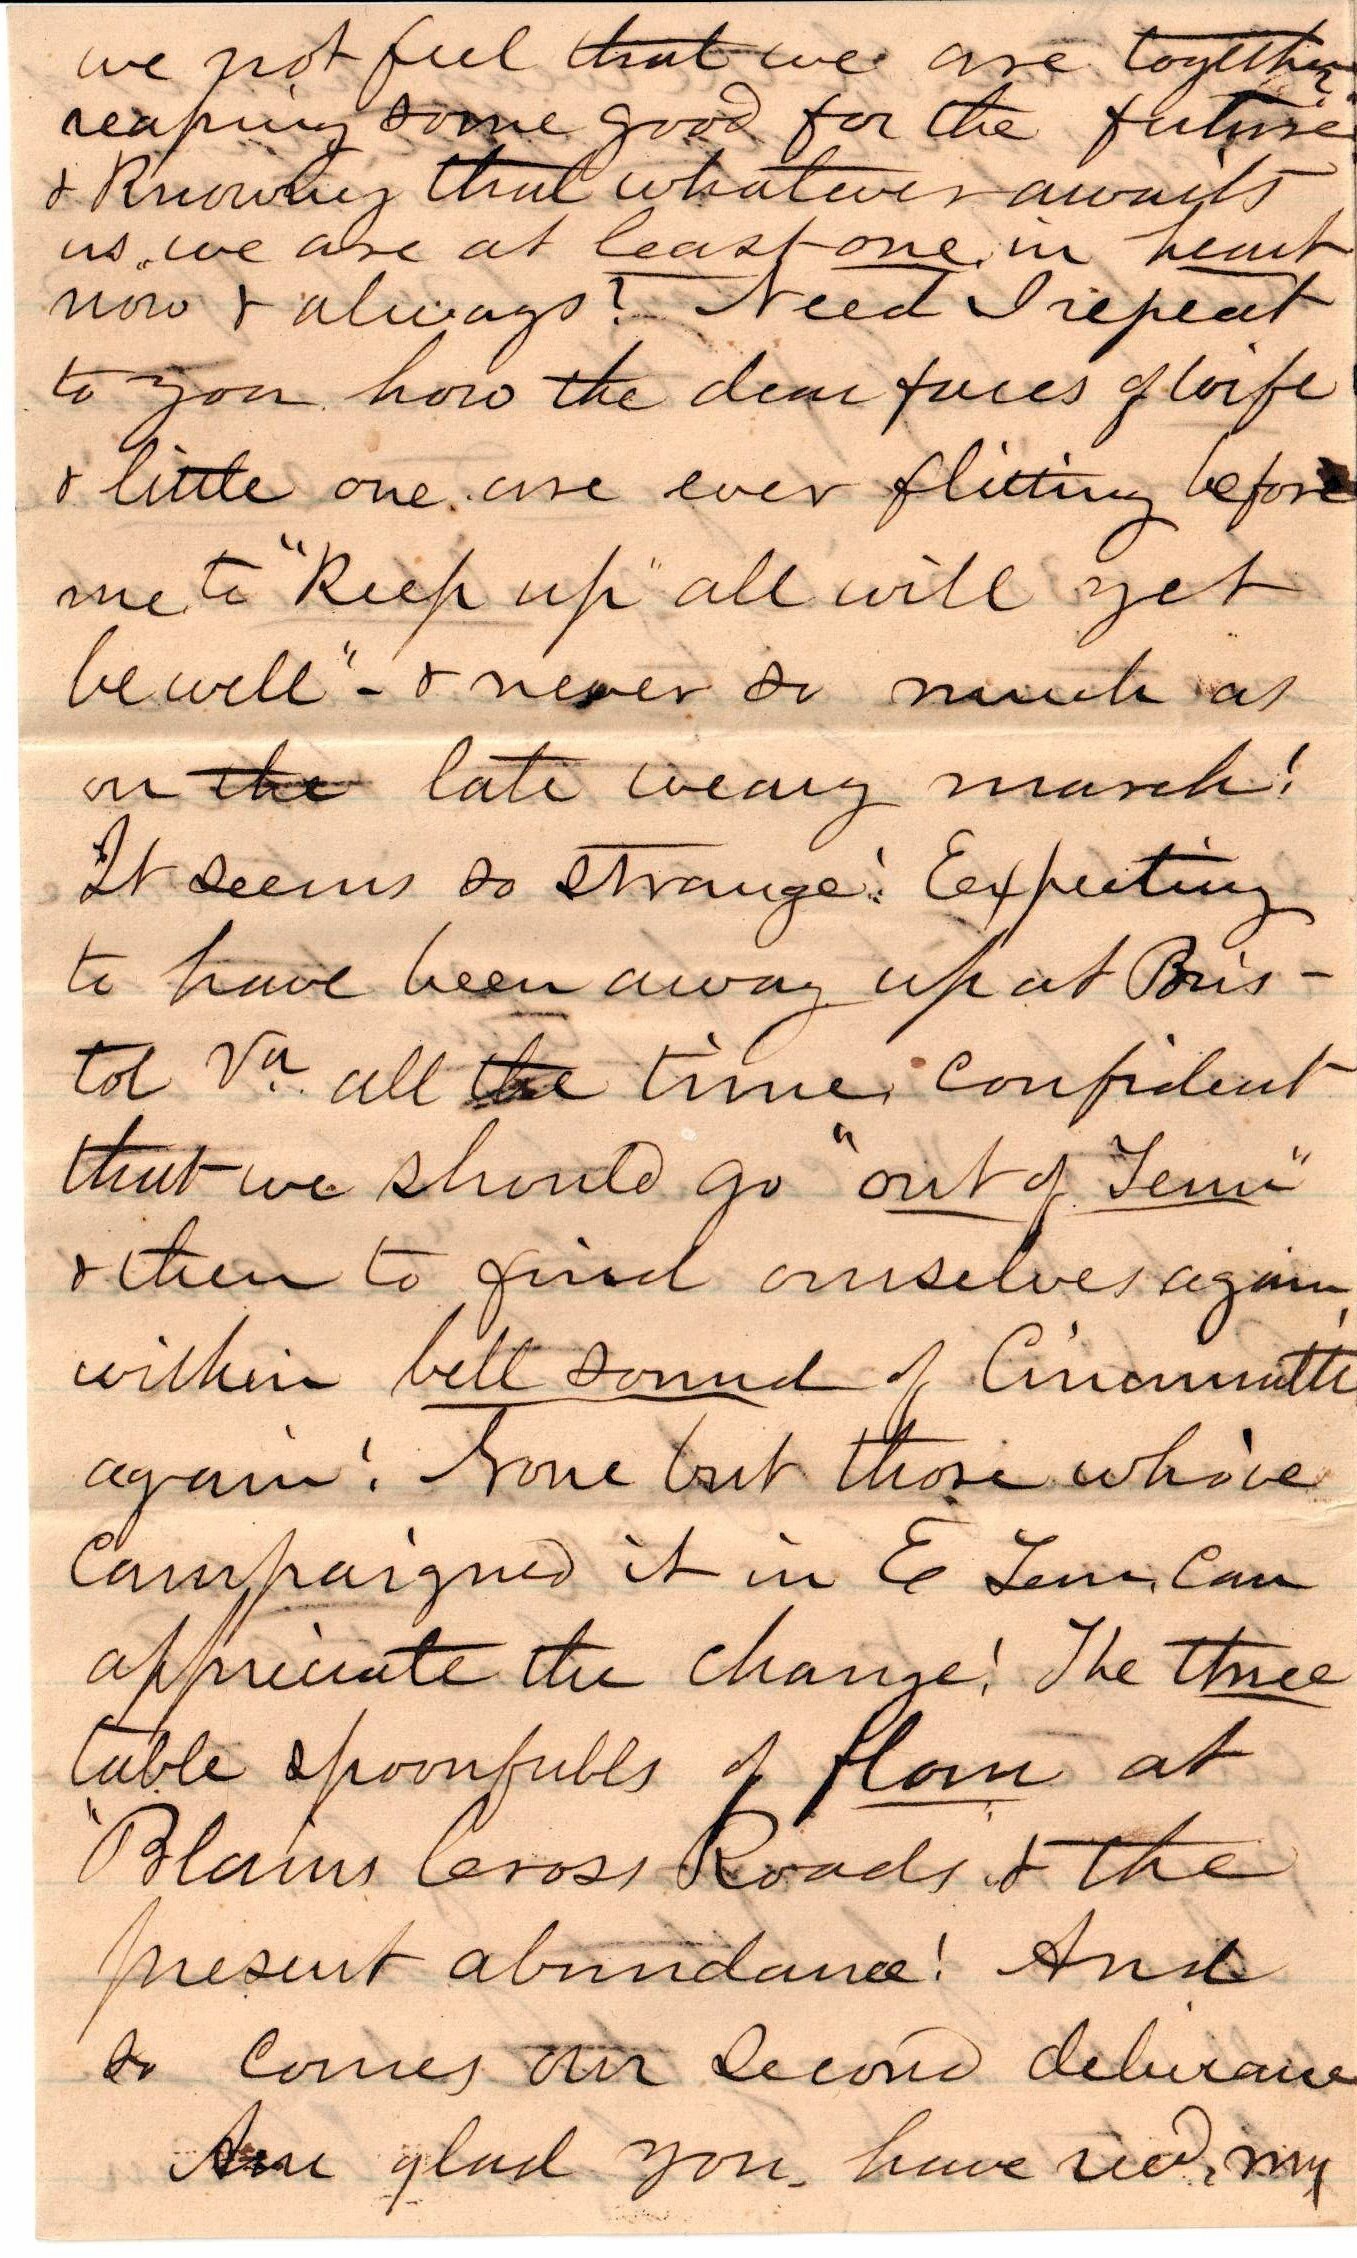 we not feel that we are together
reaping some good for the future
& Knowing that whatever awaits
us, we are at least one in heart
now & always? Need I repeat
to you how the dear faces of wife
& little one are ever flitting before
me to "Keep up" all will yet
be well" - & never so much as
on the late weary march!
It seems so strange! Expecting
to have been away up at Bris-
tol Va. all the time, confident
that we should go "out of Tenn"
& then to find ourselves again
within bell sound of Cincinnatti
again! None but those who've
Campaigned it in E Tenn. Can
appriciate the change! The three
table spoonfulls of flour at
"Blains Cross Roads" & the
present abundance! And
so comes our second deliverance
Am glad you have recd. my